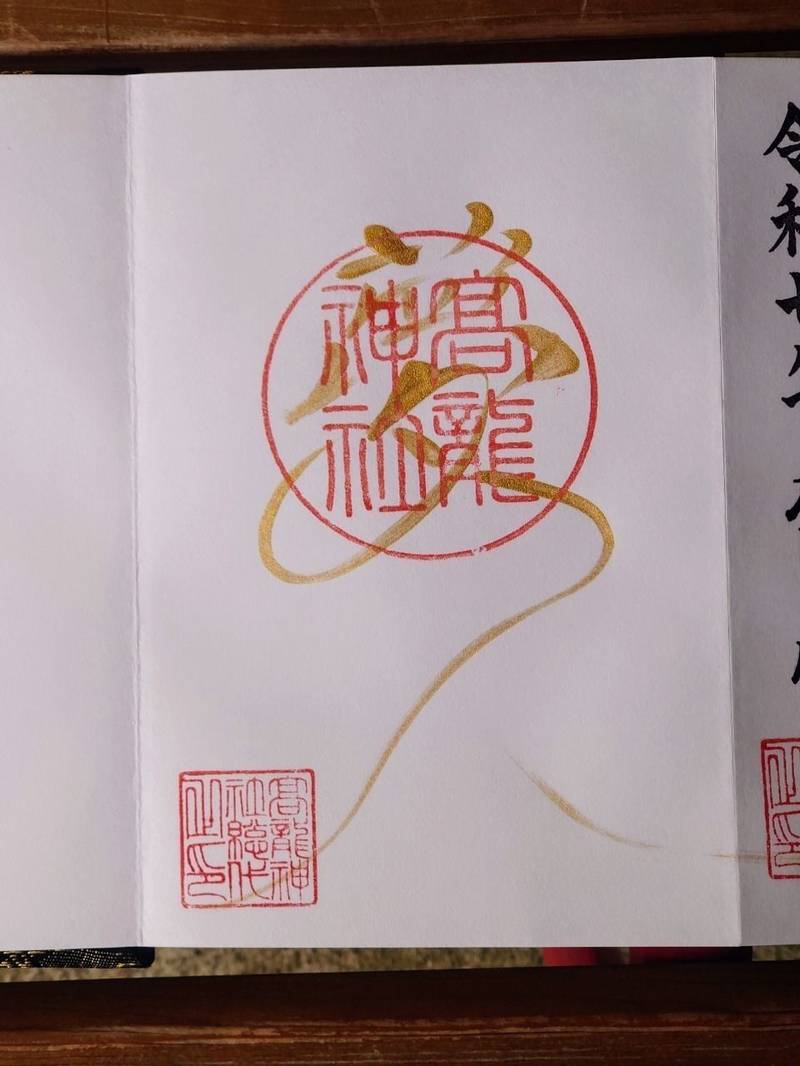 令和七年
夢
高龍
神社
高龍神
社総代
之印